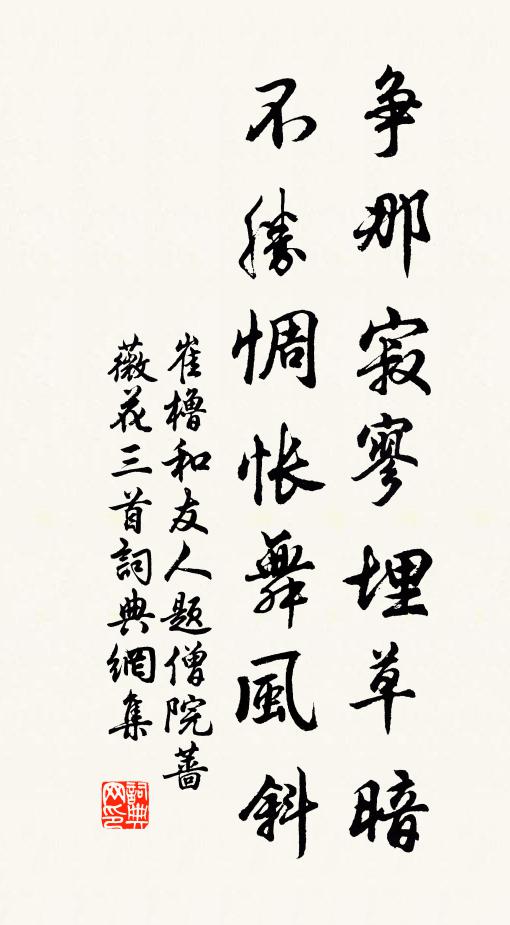 争那寂寥埋草暗
不勝惆悵舞風斜
崔櫓和友人題僧院薔
薇花三首詞典網集
詞典
网印